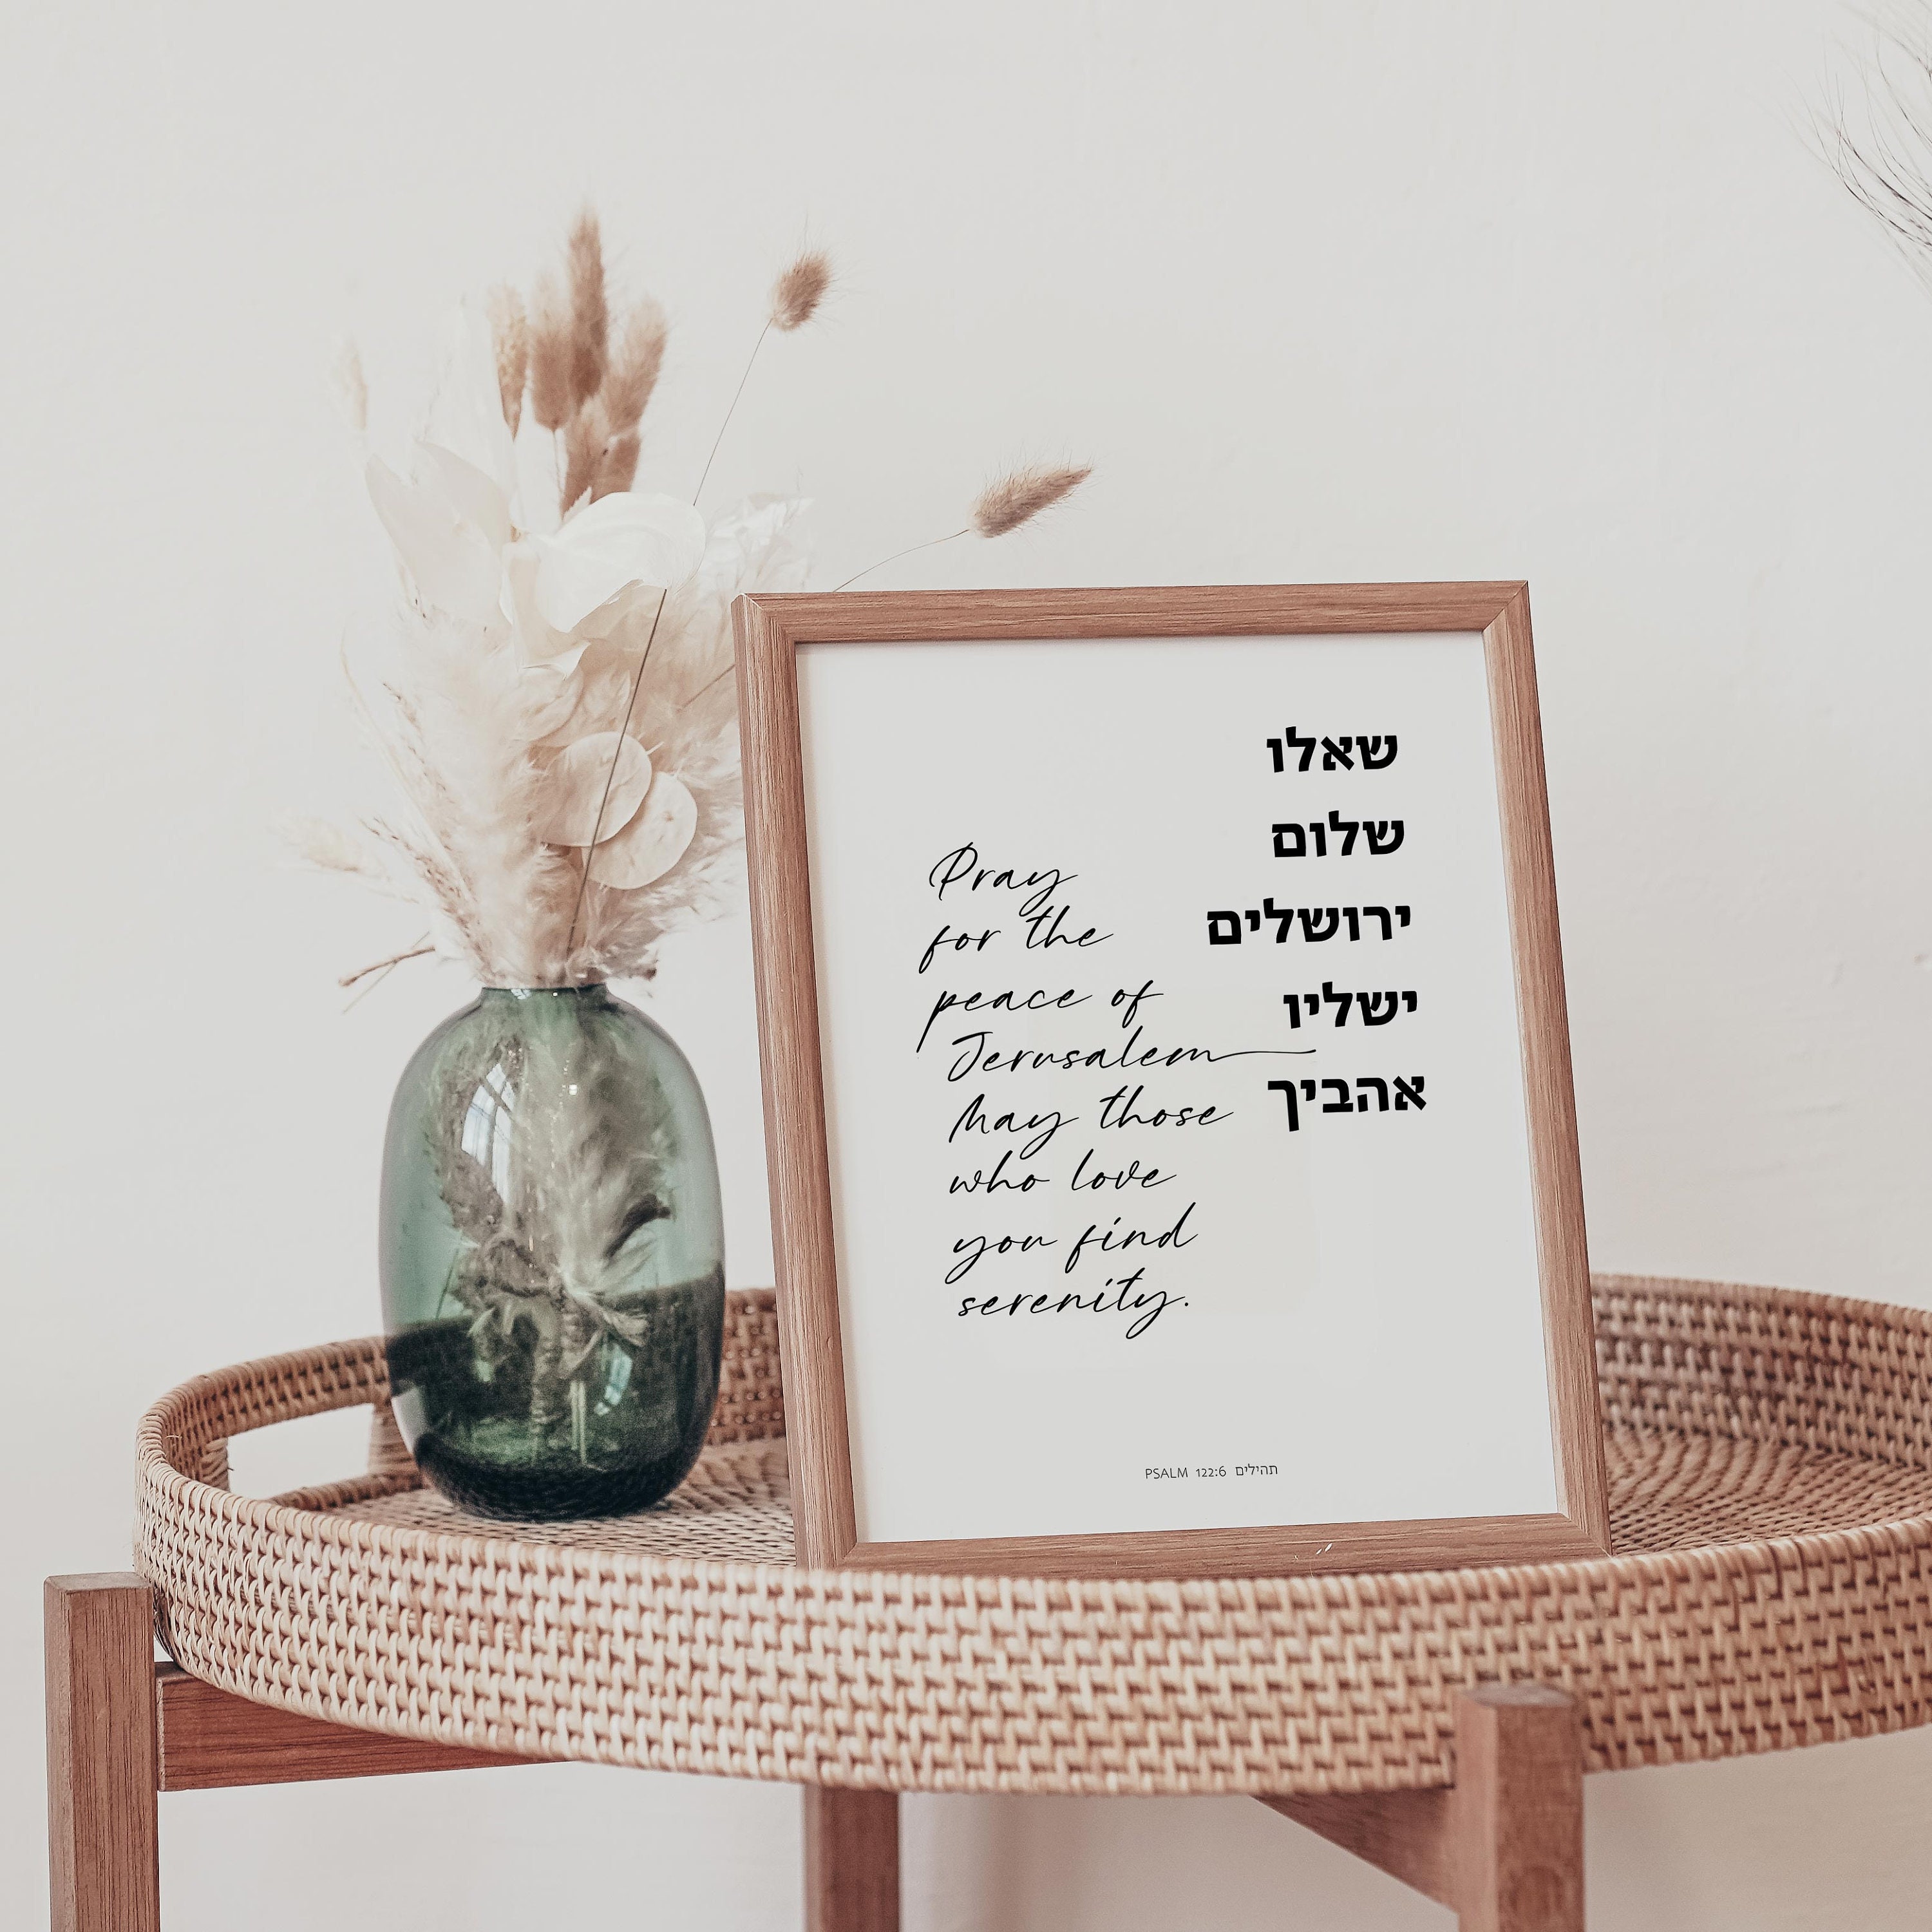 שאלו
שלום
ירושלים
ישליו
אהביך
Pray
for the
peace of
Jerusalem
May those
who love
you find
serenity.
PSALM 122:6 תהילים